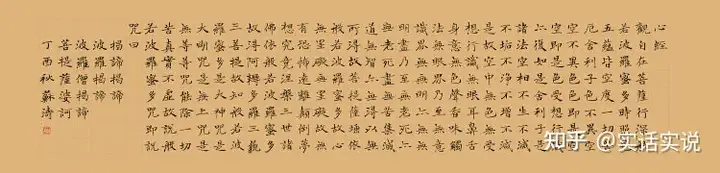 心經
觀自在菩薩行深般
若波羅蜜多時照見
五蘊皆空度一切苦
厄舍利子色不異空
空不異色色即是空
空即是色受想行識
亦復如是舍利子是
諸法空相不生不滅
不垢不淨不增不減
是故空中無色無受
想行識無眼耳鼻舌
身意無色聲香味觸
法無眼界乃至無意
識界無無明亦無無
明盡乃至無老死亦
無老死盡無苦集滅
道無智亦無得以無
所得故菩提薩埵依
般若波羅蜜多故心
無罣礙無罣礙故無
有恐怖遠離顛倒夢
想究竟涅槃三世諸
佛依般若波羅蜜多
故得阿耨多羅三藐
三菩提故知般若波
羅蜜多是大神咒是
大明咒是無上咒是
無等等咒能除一切
苦真實不虛故說般
若波羅蜜多咒即說
咒曰
揭諦揭諦
波羅揭諦
波羅僧揭諦
菩提薩婆訶
丁酉秋蘇濤
知乎 @实话实说